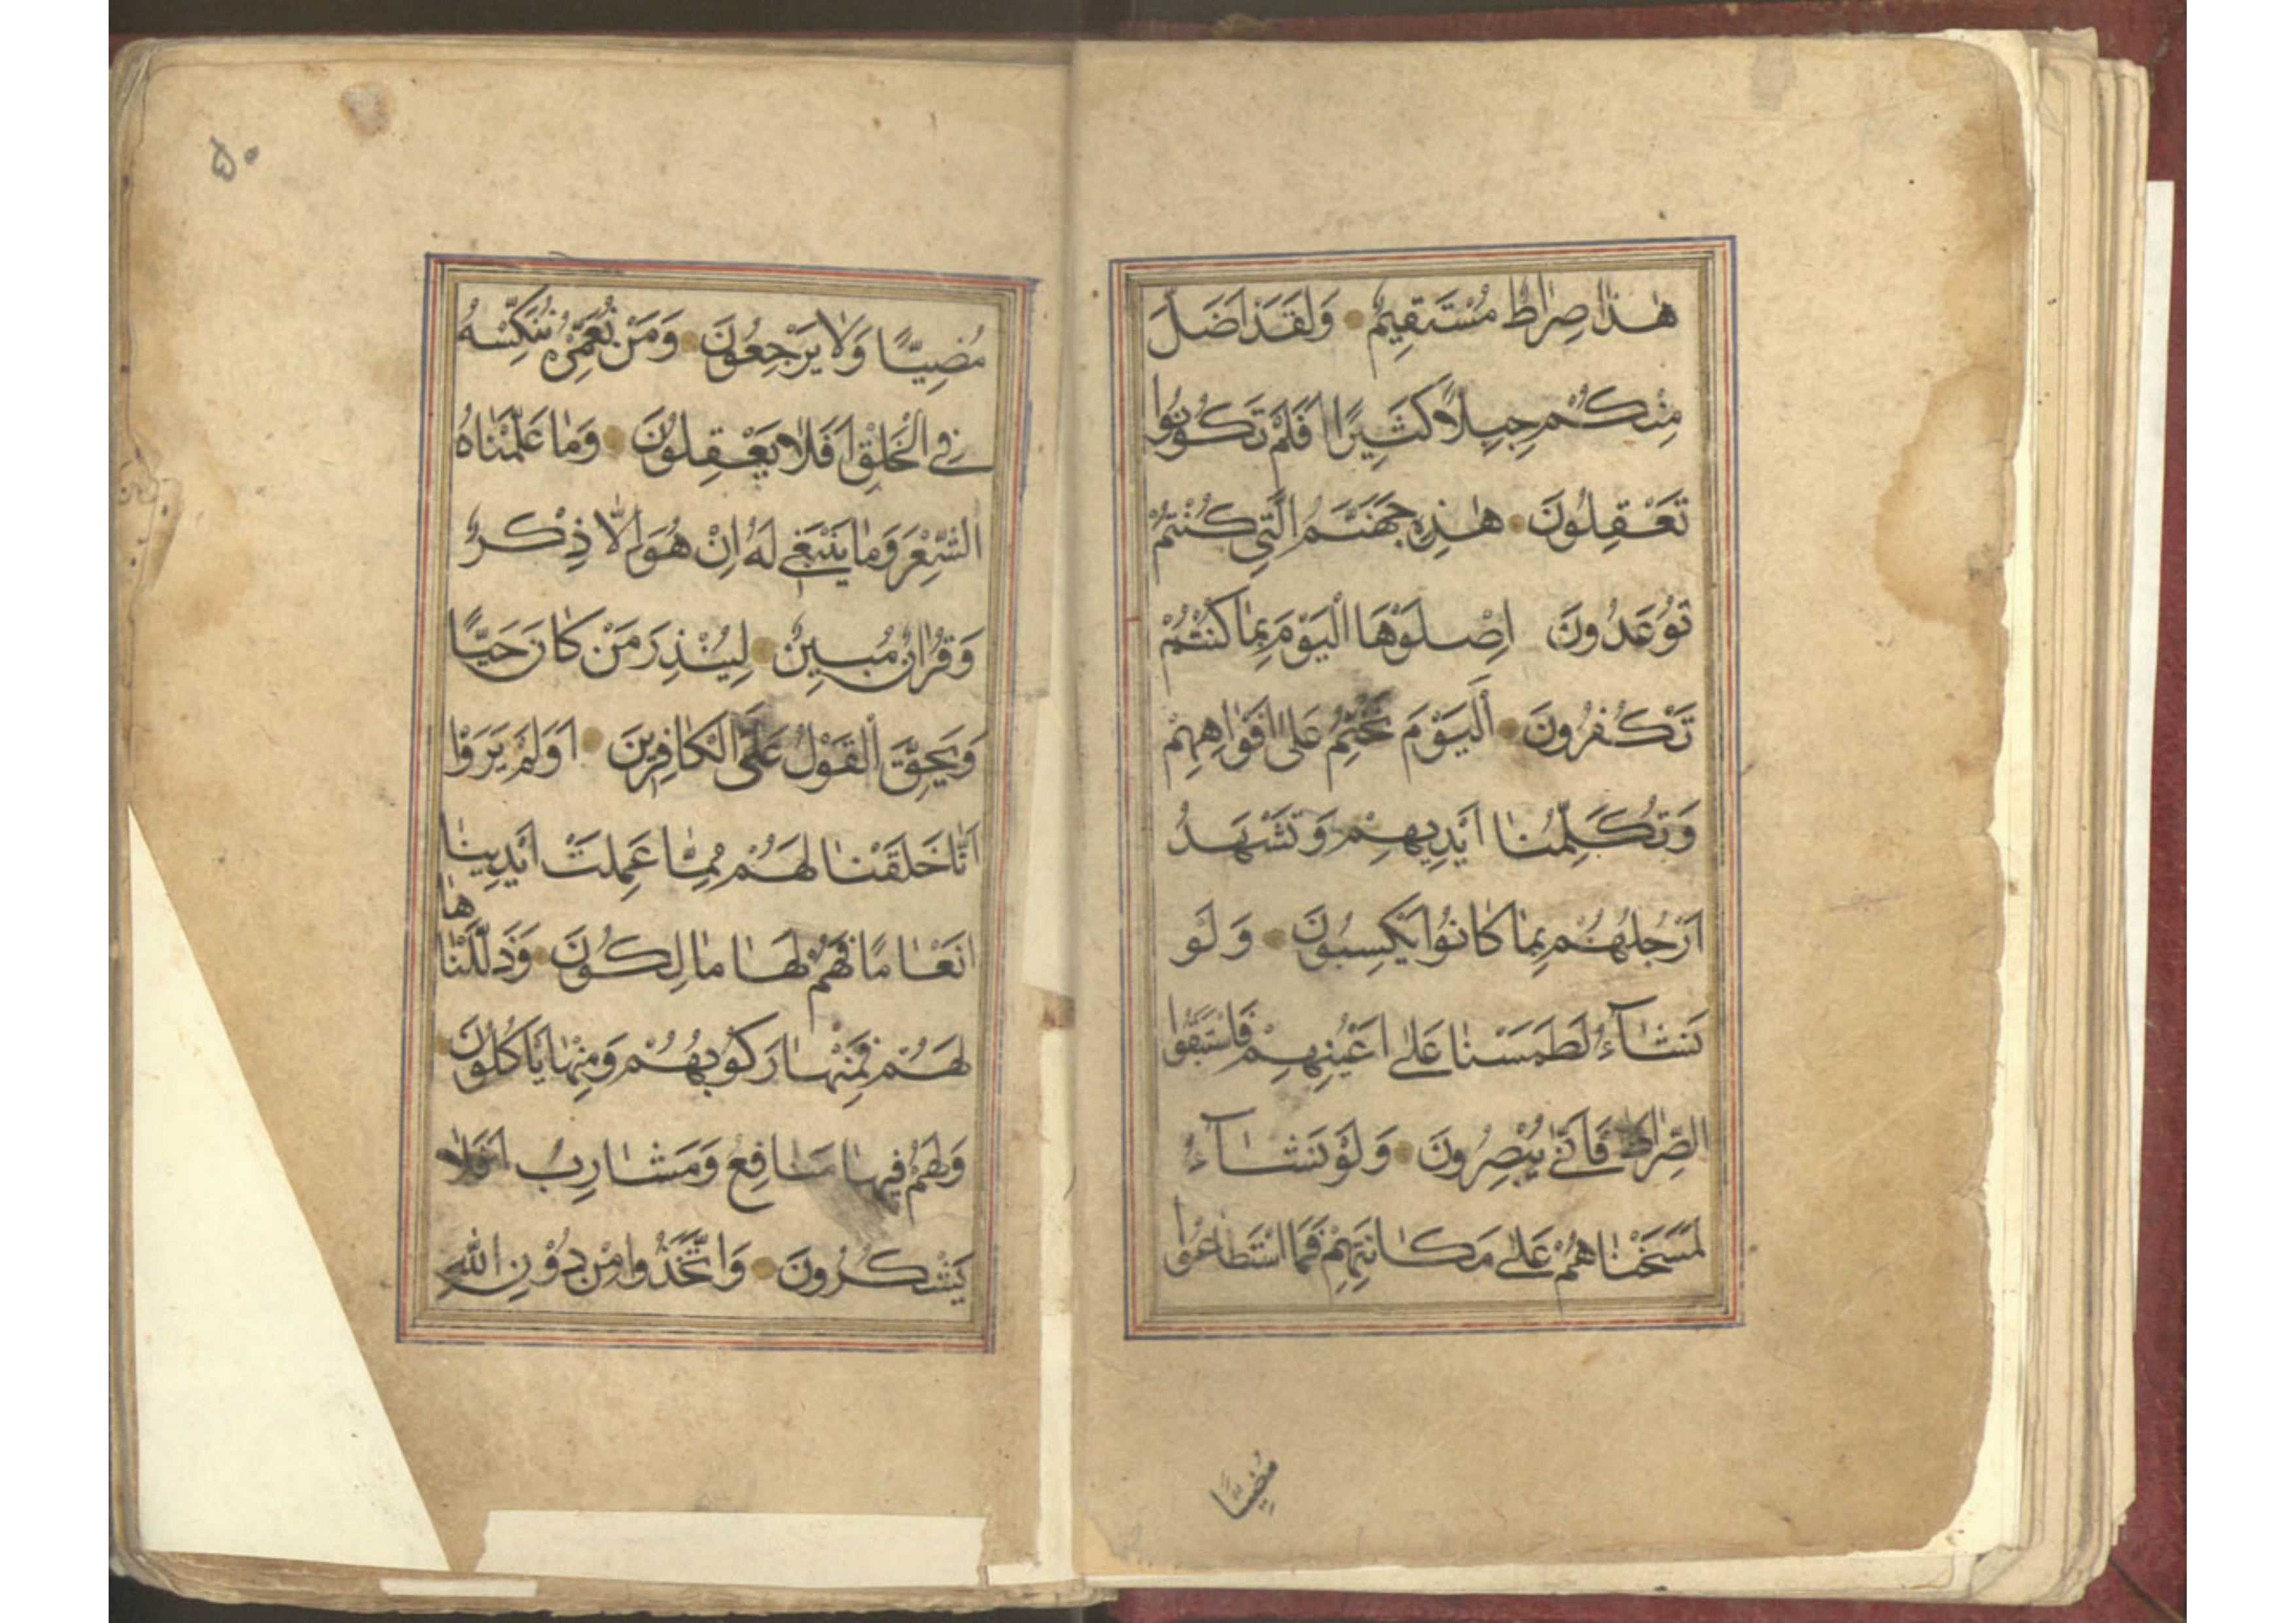 هٰذا صِراطٌ مُسْتَقِيمٌ وَلَقَدْ اَضَلَّ
مِنْكُمْ جِبِلًّا كَثِيرًا اَفَلَمْ تَكُونُوا
تَعْقِلُونَ هٰذِهِ جَهَنَّمُ الَّتِي كُنْتُمْ
تُوعَدُونَ اِصْلَوْهَا الْيَوْمَ بِمٰا كُنْتُمْ
تَكْفُرُونَ اَلْيَوْمَ نَخْتِمُ عَلىٰ اَفْوٰاهِهِمْ
وَتُكَلِّمُنٰا اَيْدِيهِمْ وَتَشْهَدُ
اَرْجُلُهُمْ بِمٰا كٰانُوا يَكْسِبُونَ وَلَوْ
نَشٰآءُ لَطَمَسْنٰا عَلىٰ اَعْيُنِهِمْ فَاسْتَبَقُوا
الصِّرٰاطَ فَاَنّٰى يُبْصِرُونَ وَلَوْ نَشٰآءُ
لَمَسَخْنٰاهُمْ عَلىٰ مَكٰانَتِهِمْ فَمَا اسْتَطٰاعُوا
مُضِيًّا
۵۰
مُضِيًّا وَلٰا يَرْجِعُونَ وَمَنْ نُعَمِّرْهُ نُنَكِّسْهُ
فِي الْخَلْقِ اَفَلٰا يَعْقِلُونَ وَمٰا عَلَّمْنٰاهُ
الشِّعْرَ وَمٰا يَنْبَغِي لَهُ اِنْ هُوَ اِلّٰا ذِكْرٌ
وَقُرْاٰنٌ مُبِينٌ لِيُنْذِرَ مَنْ كٰانَ حَيًّا
وَيَحِقَّ الْقَوْلُ عَلَى الْكٰافِرِينَ اَوَلَمْ يَرَوْا
اَنّٰا خَلَقْنٰا لَهُمْ مِمّٰا عَمِلَتْ اَيْدِينٰا
اَنْعٰامًا فَهُمْ لَهٰا مٰالِكُونَ وَذَلَّلْنٰا هٰا
لَهُمْ فَمِنْهٰا رَكُوبُهُمْ وَمِنْهٰا يَأْكُلُونَ
وَلَهُمْ فِيهٰا مَنٰافِعُ وَمَشٰارِبُ اَفَلٰا
يَشْكُرُونَ وَاتَّخَذُوا مِنْ دُونِ اللّٰهِ